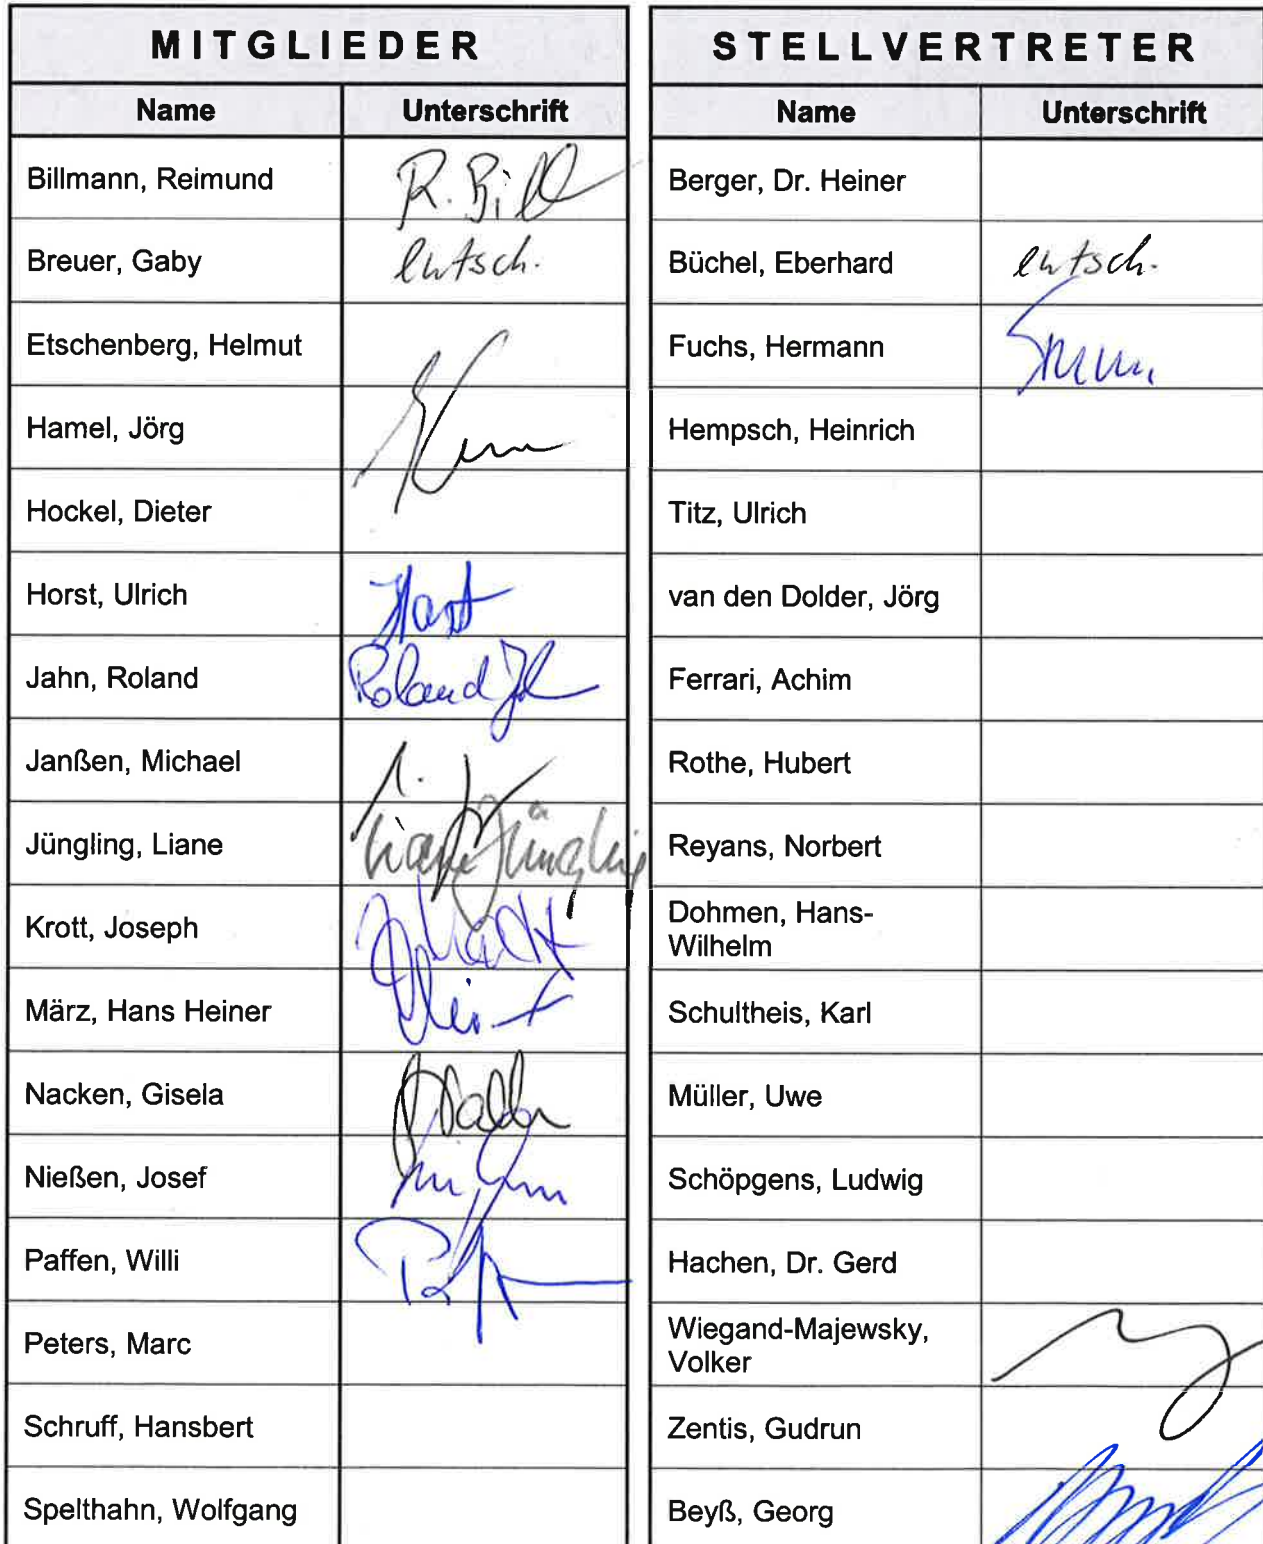 MITGLIEDER
Name Unterschrift
Billmann, Reimund R. Bill
Breuer, Gaby entsch.
Etschenberg, Helmut
Hamel, Jörg
Hockel, Dieter
Horst, Ulrich Horst
Jahn, Roland Roland Jahn
Janßen, Michael
Jüngling, Liane Liane Jüngling
Krott, Joseph
März, Hans Heiner
Nacken, Gisela
Nießen, Josef
Paffen, Willi
Peters, Marc
Schruff, Hansbert
Spelthahn, Wolfgang
STELLVERTRETER
Name Unterschrift
Berger, Dr. Heiner
Büchel, Eberhard entsch.
Fuchs, Hermann
Hempsch, Heinrich
Titz, Ulrich
van den Dolder, Jörg
Ferrari, Achim
Rothe, Hubert
Reyans, Norbert
Dohmen, Hans-
Wilhelm
Schultheis, Karl
Müller, Uwe
Schöpgens, Ludwig
Hachen, Dr. Gerd
Wiegand-Majewsky,
Volker
Zentis, Gudrun
Beyß, Georg